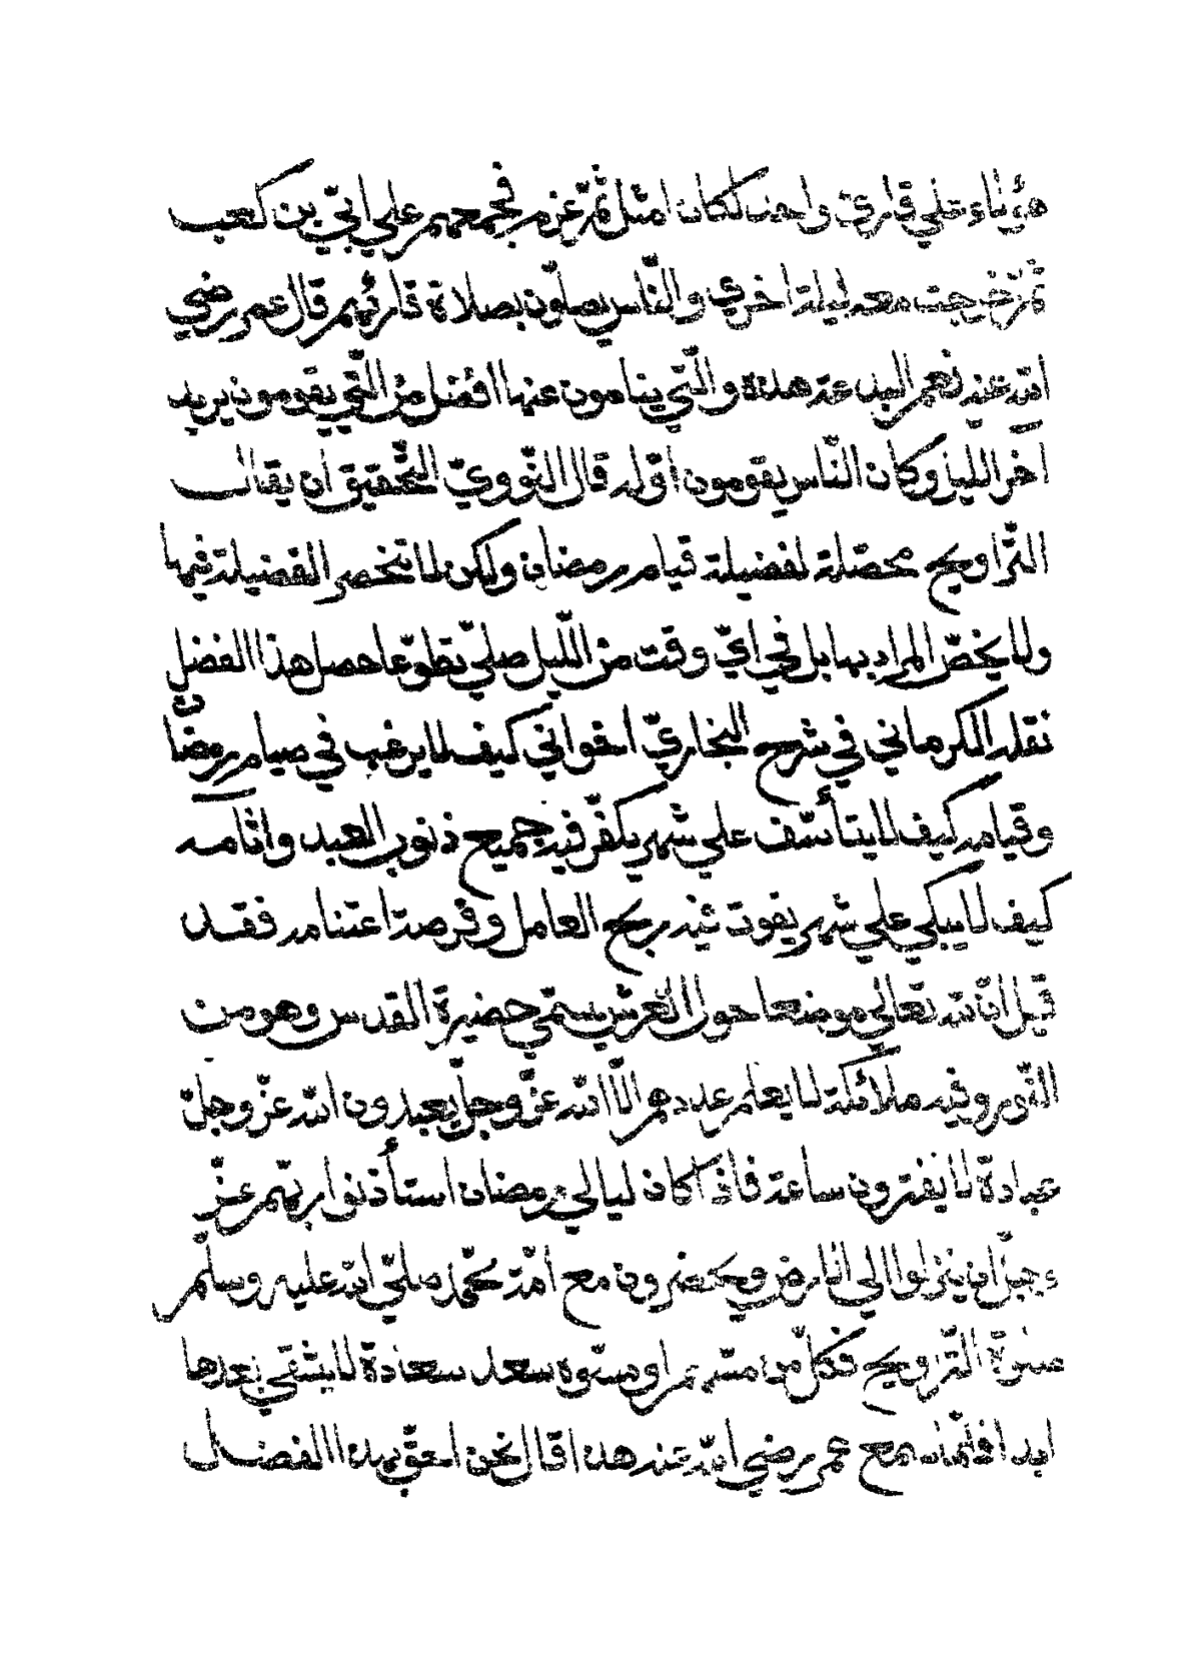 هؤلاء على قارئ واحد لكان امثل ثمّ عزم فجمعهم علي ابيّ بن كعب
ثمّ خرجت معه ليلة اخري والنّاس يصلّون بصلاة قارئهم قال عمر رضي
الله عنه نعم البدعة هذه والّتي ينامون عنها افضل من الّتي يقومون يريد
آخر الليل وكان النّاس يقومون اوّله قال النّوويّ التّحقيق ان يقال
التّراويح محصّلة لفضيلة قيام رمضان ولكن لا تنحصر الفضيلة فيها
ولا يخصّ المراد بها بل في ايّ وقت من اللّيل صلّي تطوّعا حصل هذا الفضل
نقله الكرماني في شرح البخاريّ اخواني كيف لا يرغب في صيام رمضان
وقيامه كيف لا يتأسّف علي شهر يكفّر فيه جميع ذنوب العبد واثامه
كيف لا يبكي علي شهر يفوت فيه ربح العامل وفرصة اغتنامه فقد
قيل انّ لله تعالي موضعا حول العرش يسمّي حضيرة القدس وهو من
النّور وفيه ملائكة لا يعلم عددهم الّا الله عزّ وجلّ يعبدون الله عزّ وجلّ
عبادة لا يفترون ساعة فاذا كان ليالي رمضان استأذنوا ربّهم عزّ
وجلّ ان ينزلوا الي الارض ويحضرون مع امّة محمّد صلّي الله عليه وسلّم
صلوة التّراويح فكلّ من مسّهم او مسّوه سعد سعادة لا يشقي بعدها
ابدا فلمّا سمع عمر رضي الله عنه هذا قال نحن احقّ بهذا الفضل